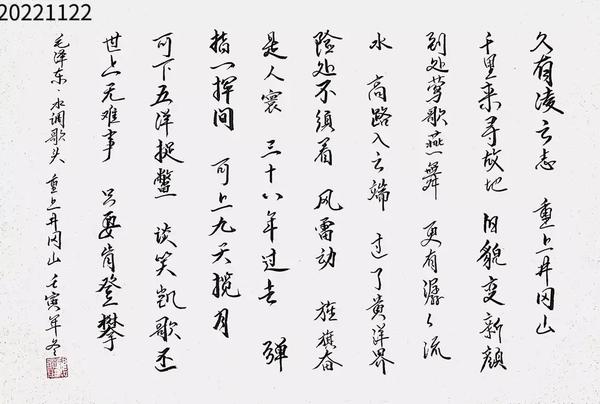 20221122
久有凌云志 重上井冈山
千里来寻故地 旧貌变新颜
到处莺歌燕舞 更有潺々流
水 高路入云端 过了黄洋界
险处不须看 风雷动 旌旗奋
是人寰 三十八年过去 弹
指一挥间 可上九天揽月
可下五洋捉鳖 谈笑凯歌还
世上无难事 只要肯登攀
毛泽东·水调歌头 重上井冈山 壬寅年冬